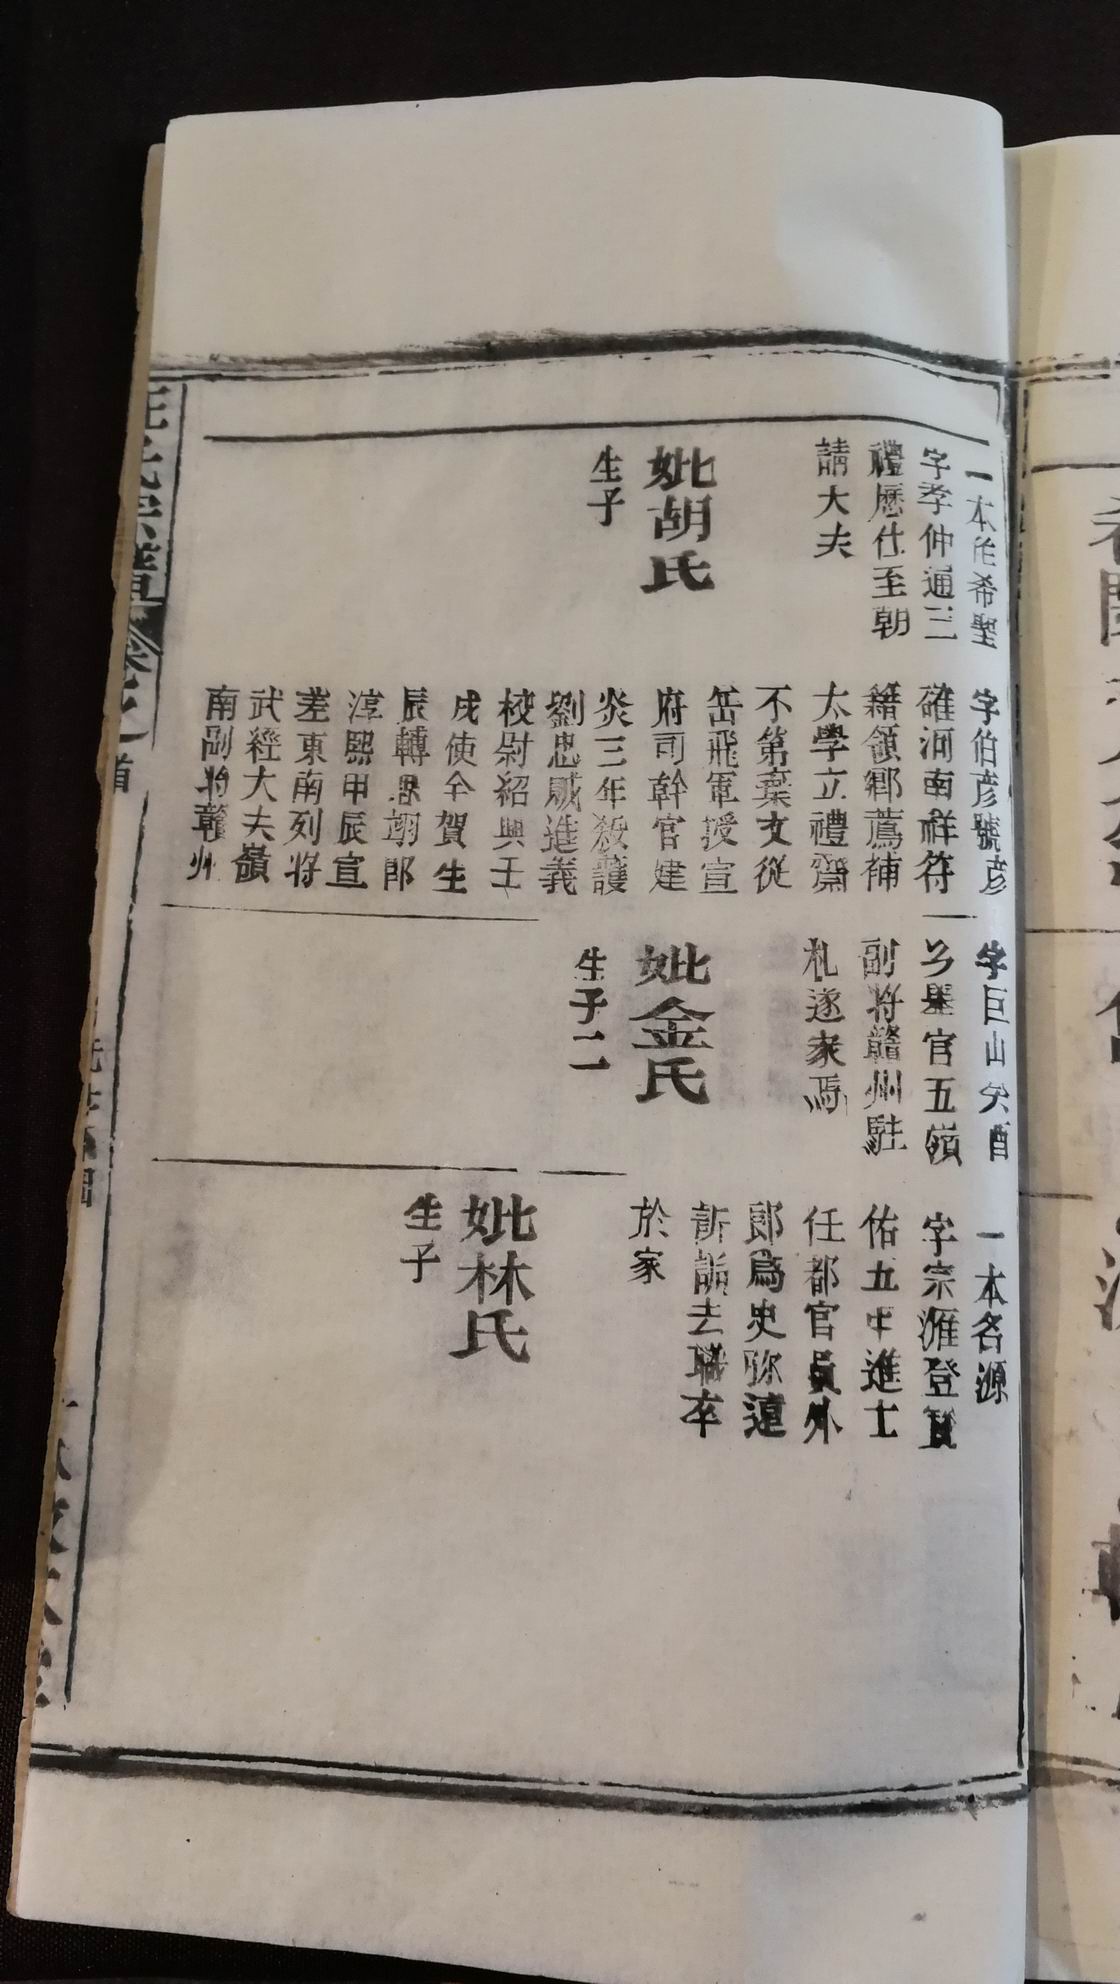 一本作希聖
字孝仲通三
禮歷仕至朝
請大夫
妣胡氏
生子
字伯彥號彥
確河南祥符
籍領鄉薦補
太學立禮齋
不第棄文從
岳飛軍授宣
府司幹官建
炎三年殺護
劉忠賊進義
校尉紹興壬
戌使全賀生
辰轉忠翊郎
淳熙甲辰宣
差東南列將
武經大夫嶺
南副將贛州
字巨山癸酉
官五嶺
副將贛州駐
札遂家焉
妣金氏
生子二
一本名源
字宗濰登寶
佑五甲進士
任都官員外
郎為史弥遠
訴詬去職卒
於家
妣林氏
生子
汪氏宗譜